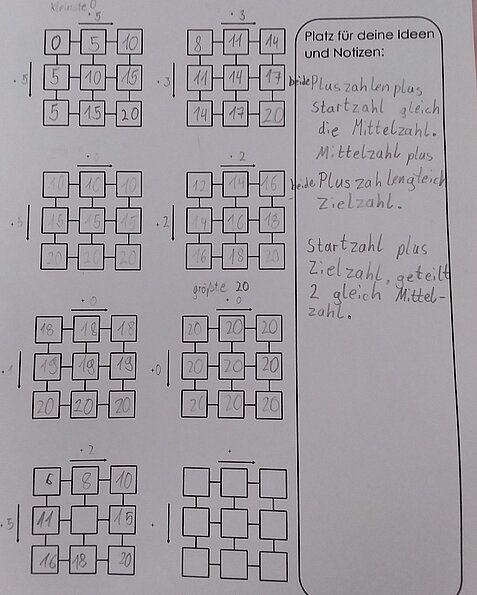 kleinste 0
+ 5
0 5 10
+ 5
5 10 15
5 15 20
+ 3
8 11 14
+ 3
11 14 17
14 17 20
10 10 10
+ 5
15 15 15
20 20 20
+ 2
12 14 16
+ 2
14 16 18
16 18 20
+ 0
18 18 18
+ 1
19 19 19
20 20 20
größte 20
+ 0
20 20 20
+0
20 20 20
20 20 20
+ 2
6 8 10
+ 5
11 15
16 18 20
+
+
Platz für deine Ideen
und Notizen:
beide Pluszahlen plus
Startzahl gleich
die Mittelzahl.
Mittelzahl plus
beide Pluszahlen gleich
Zielzahl.
Startzahl plus
Zielzahl, geteilt
2 gleich Mittel-
zahl.